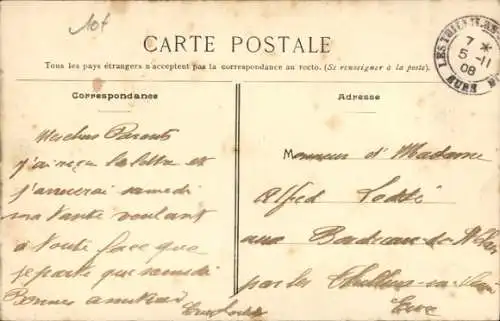 10f
CARTE POSTALE
Tous les pays étrangers n'acceptent pas la correspondance au recto. (Se renseigner à la poste).
Correspondance
Adresse
7 *
5 -11
08
EURE
Mes chers Parents
j'ai reçu la lettre et
j'arriverai samedi
ma tante voulant
à toute force que
je parte que samedi
Bonnes amitiés
Monsieur d' Madame
Alfred
aux Bordeaux de
par les
Eure